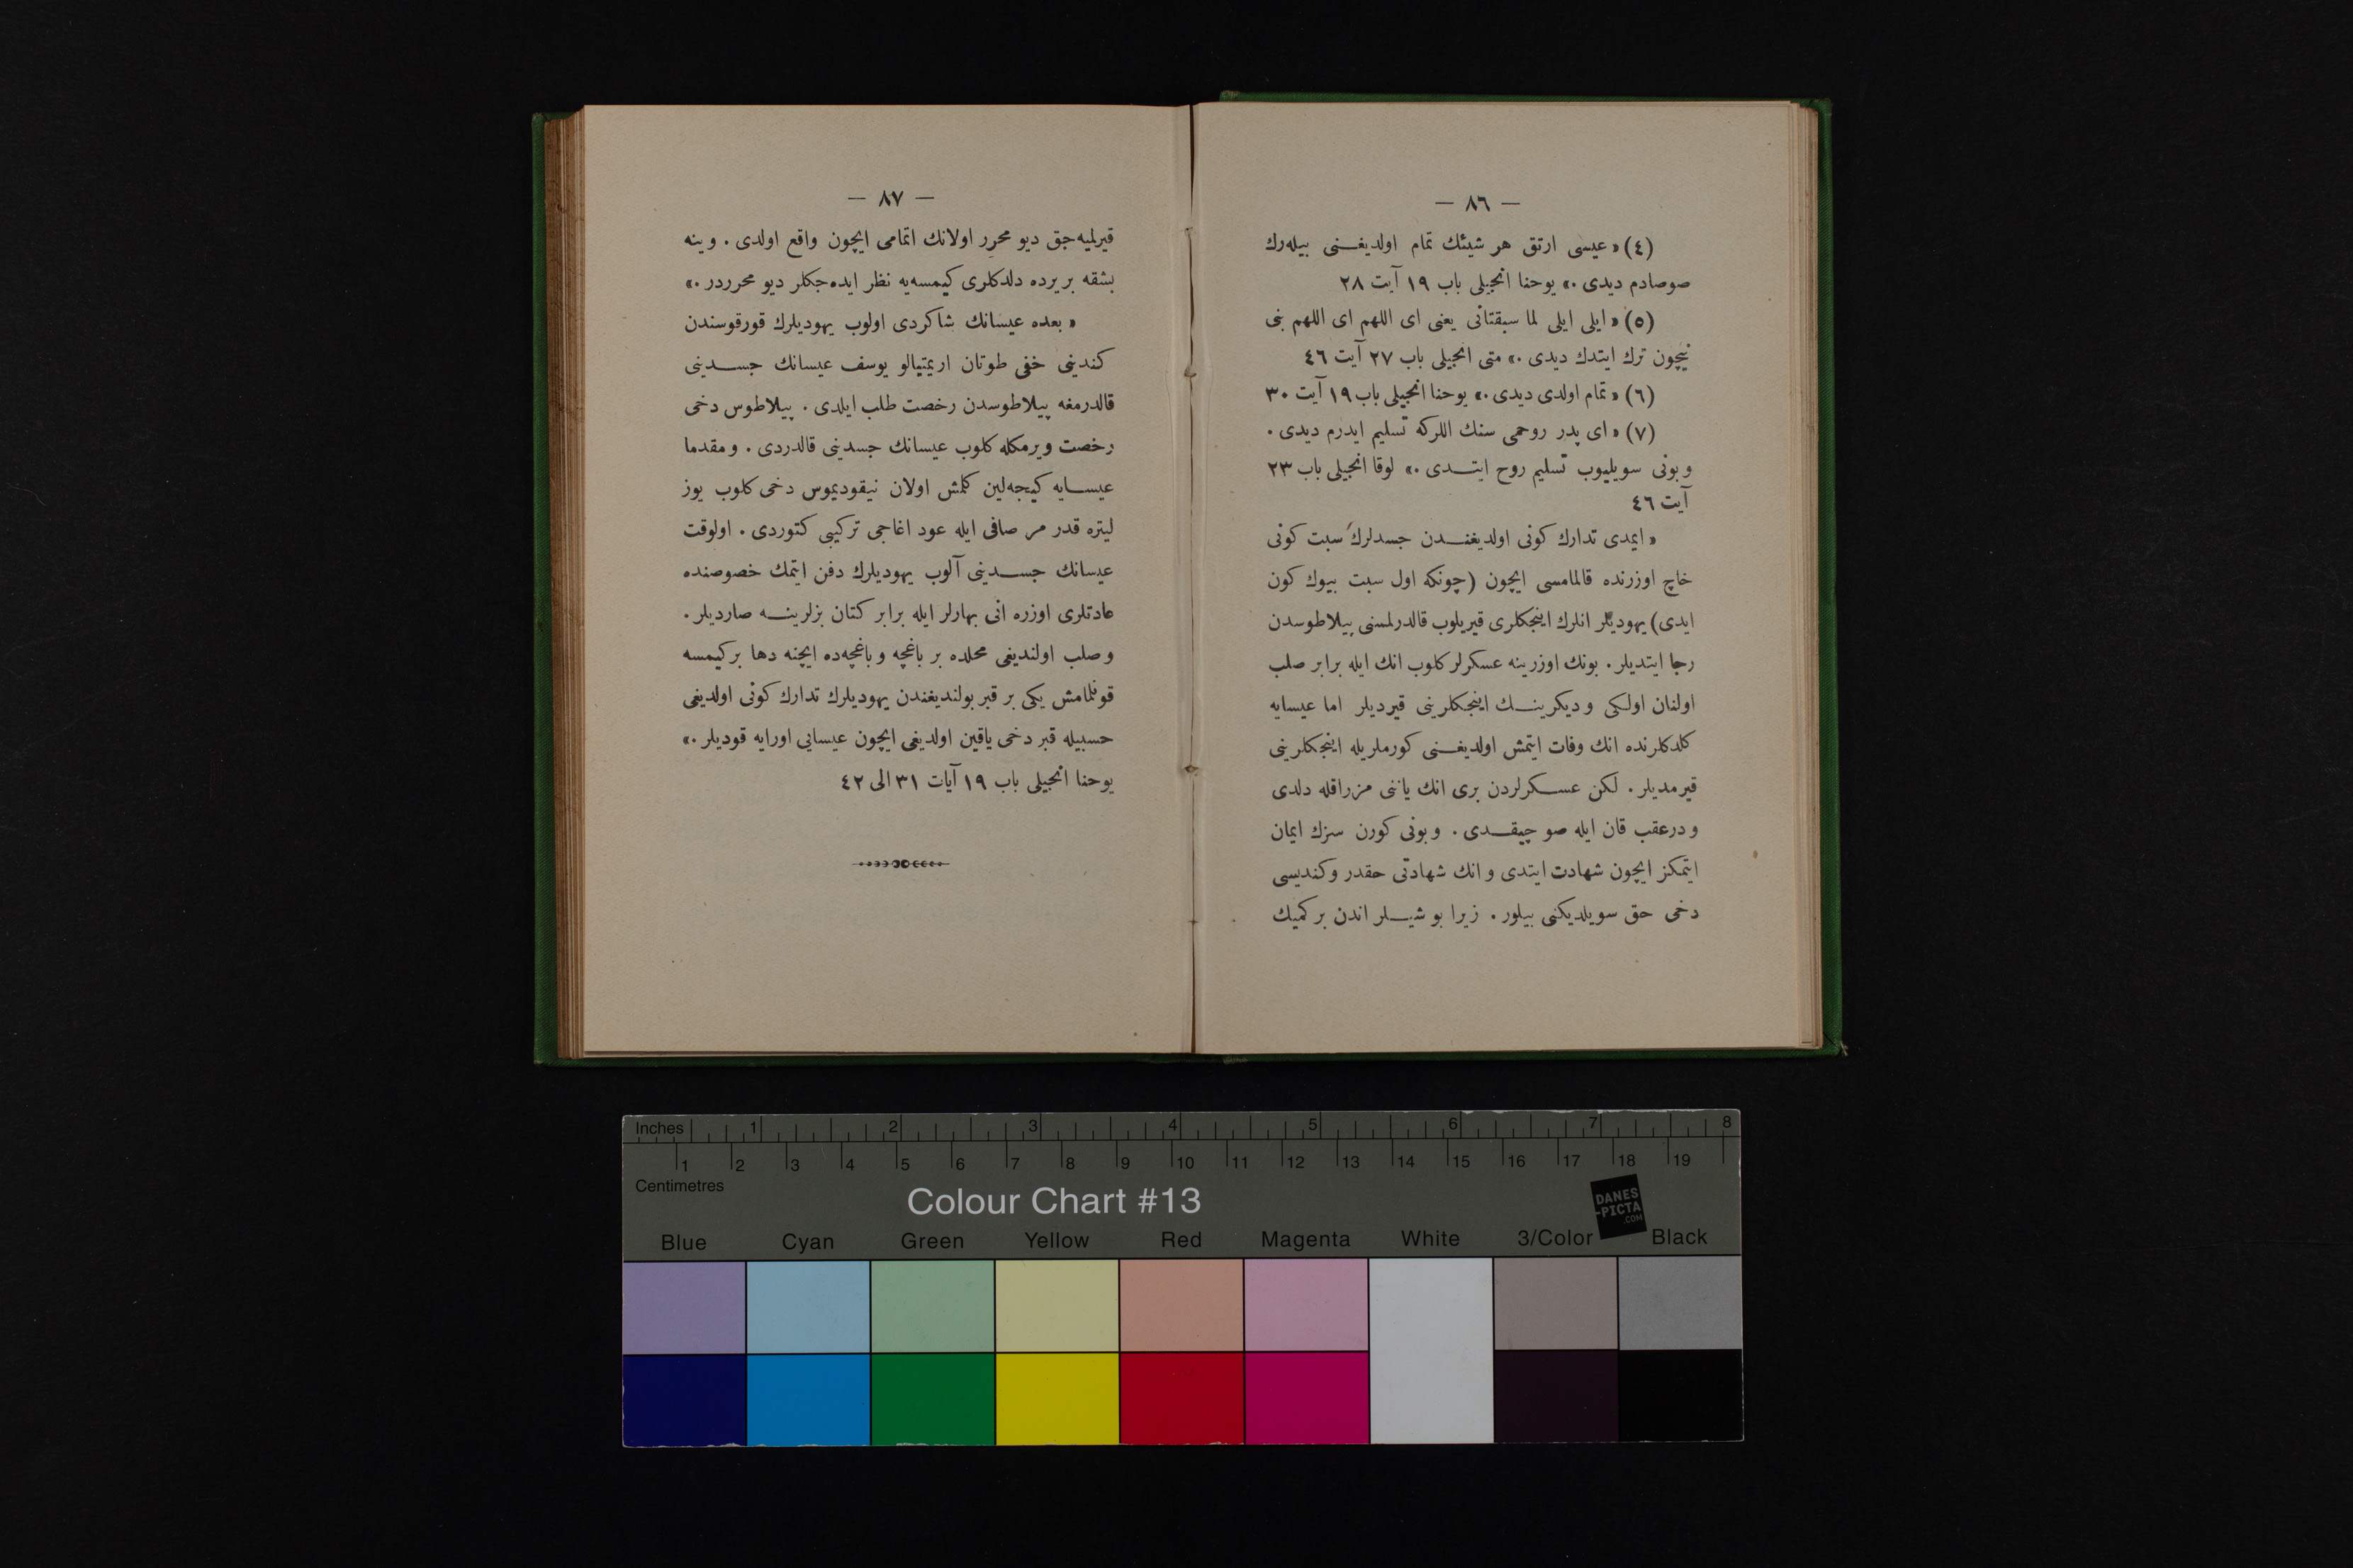 — ٨٦ —
(٤) « عیسی ارتق هر شیئك تمام اولدیغنی بیله‌رك
صوصادم دیدی ٠» یوحنا انجیلی باب ١٩ آیت ٢٨
(٥) « ایلی ایلی لما سبقتانی یعنی ای اللهم ای اللهم بنی
نیچون ترك ایتدك دیدی ٠» متی انجیلی باب ٢٧ آیت ٤٦
(٦) « تمام اولدی دیدی ٠» یوحنا انجیلی باب ١٩ آیت ٣٠
(٧) « ای پدر روحمی سنك اللركه تسلیم ایدرم دیدی ٠
و بونی سویلیوب تسلیم روح ایتدی ٠» لوقا انجیلی باب ٢٣
آیت ٤٦
« ایمدی تدارك کونی اولدیغندن جسدلرك سبت کونی
خاچ اوزرنده قالمامسی ایچون (چونکه اول سبت بیوك کون
ایدی) یهودیلر انلرك اینجکلری قیریلوب قالدرلمسنی پیلاطوسدن
رجا ایتدیلر ٠ بونك اوزرینه عسکرلر کلوب انك ایله برابر صلب
اولنان اولکی و دیکرینك اینجکلرینی قیردیلر اما عیسایه
کلدکلرنده انك وفات ایتمش اولدیغنی کورملریله اینجکلرینی
قیرمدیلر ٠ لکن عسکرلردن بری انك یاننی مزراقله دلدی
و درعقب قان ایله صو چیقدی ٠ و بونی کورن سزك ایمان
ایتمکز ایچون شهادت ایتدی و انك شهادتی حقدر و کندیسی
دخی حق سویلدیکنی بیلور ٠ زیرا بو شیلر اندن بر کمیك
— ٨٧ —
قیرلمیه‌جق دیو محرر اولانك اتمامی ایچون واقع اولدی ٠ وینه
بشقه بر یرده دلدکلری کیمسه‌یه نظر ایده‌جکلر دیو محرردر ٠»
« بعده عیسانك شاکردی اولوب یهودیلرك قورقوسندن
کندینی خفی طوتان اریمتیالو یوسف عیسانك جسدینی
قالدرمغه پیلاطوسدن رخصت طلب ایلدی ٠ پیلاطوس دخی
رخصت ویرمکله کلوب عیسانك جسدینی قالدردی ٠ و مقدما
عیسایه کیجه‌لین کلمش اولان نیقودیموس دخی کلوب یوز
لیتره قدر مر صافی ایله عود اغاجی ترکیبی کتوردی ٠ اولوقت
عیسانك جسدینی آلوب یهودیلرك دفن ایتمك خصوصنده
عادتلری اوزره انی بهارلر ایله برابر کتان بزلرینه صاردیلر ٠
و صلب اولندیغی محلده بر باغچه و باغچه‌ده ایچنه دها بر کیمسه
قونلمامش یکی بر قبر بولندیغندن یهودیلرك تدارك کونی اولدیغی
حسبیله قبر دخی یاقین اولدیغی ایچون عیسایی اورایه قودیلر ٠»
یوحنا انجیلی باب ١٩ آیات ٣١ الی ٤٢
Inches 1 2 3 4 5 6 7 8
1 2 3 4 5 6 7 8 9 10 11 12 13 14 15 16 17 18 19
Centimetres
Colour Chart #13
DANES
-PICTA
.COM
Blue Cyan Green Yellow Red Magenta White 3/Color Black